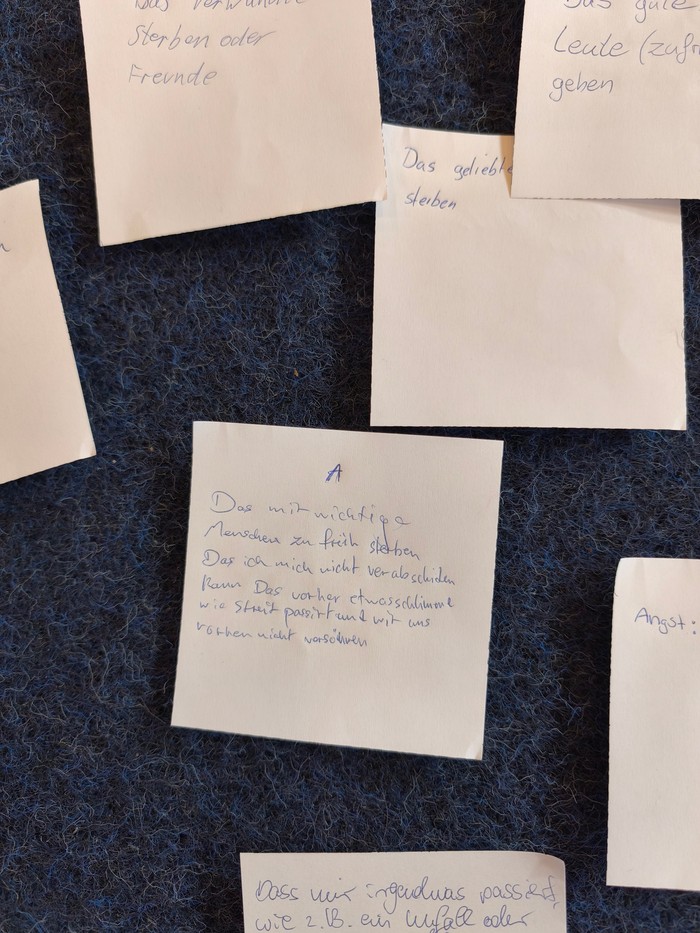 Das verwandte
Sterben oder
Freunde
Das gute
Leute (zufr
gehen
Das geliebte
sterben
A
Das mir wichtige
Menschen zu früh sterben
Das ich mich nicht verabschiden
kann Das vorher etwas schlimme
wie Streit passirt und wir uns
vorher nicht versöhnen
Angst:
Dass mir irgendwas passiert,
wie z.B. ein Unfall oder